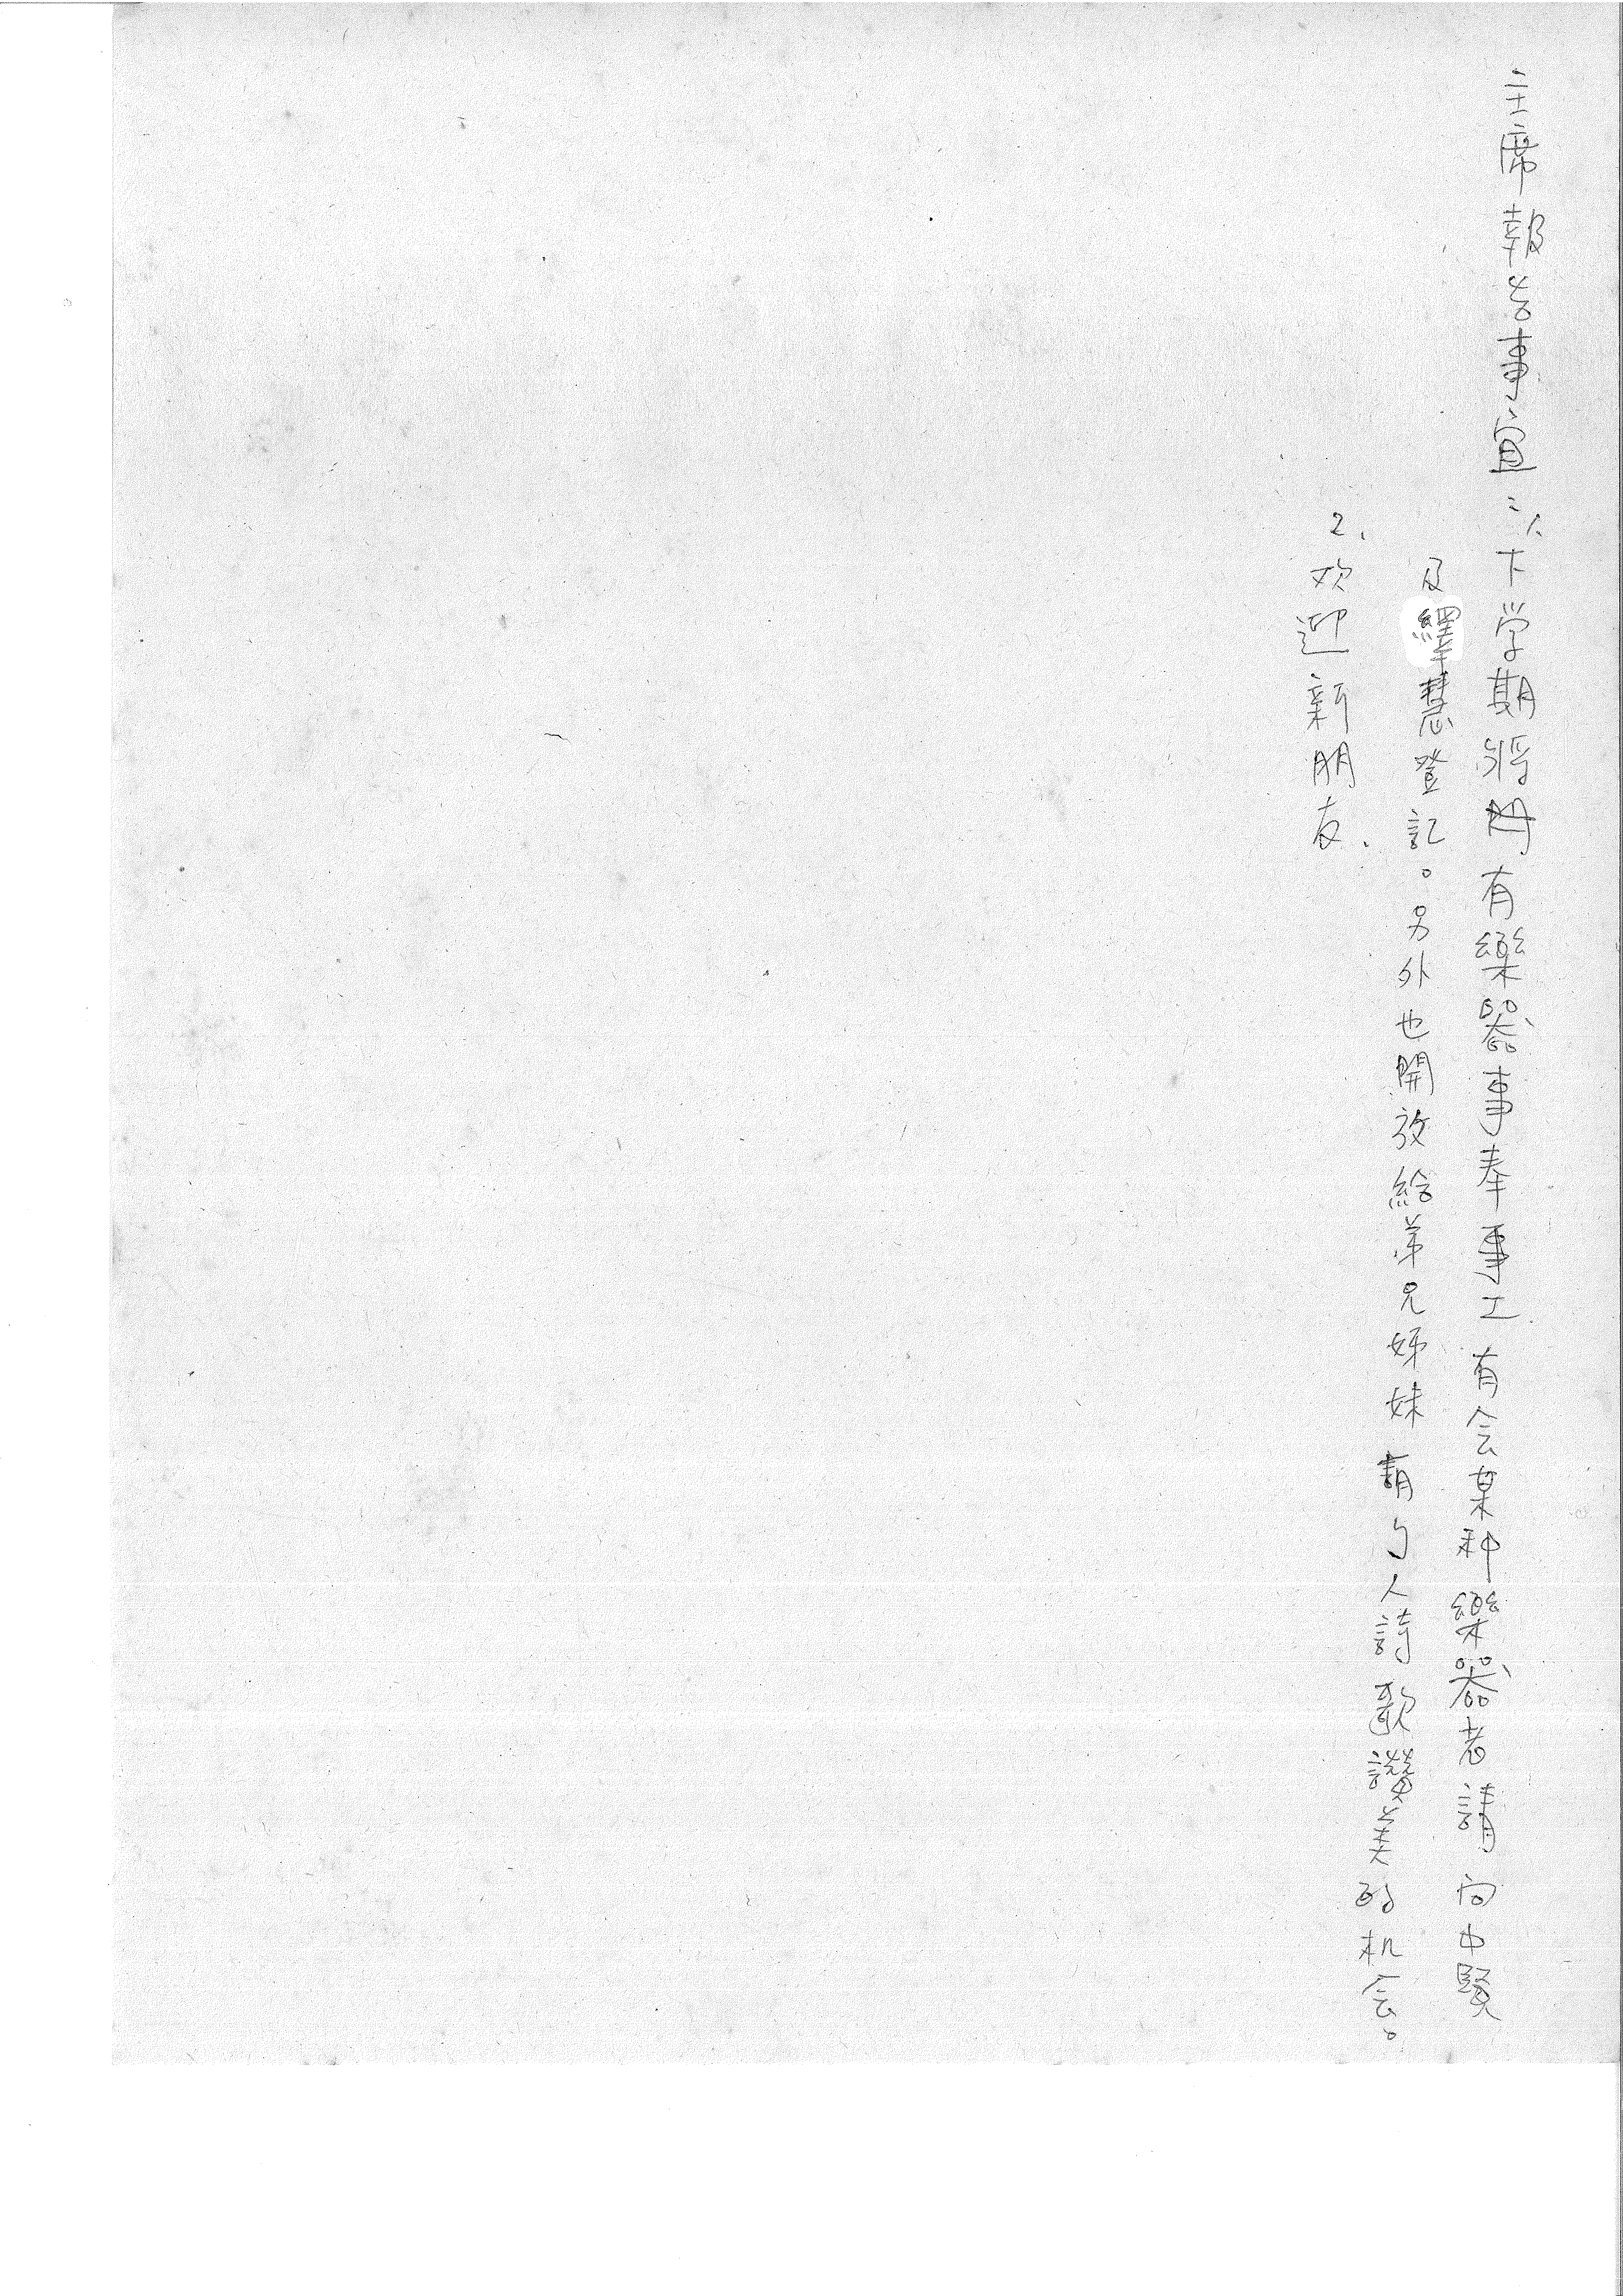 主席報告事宜：1.下学期將有樂器事奉事工有会某种樂器者請向中賢
及繹慧登記。另外也開放給弟兄姊妹有个人詩歌讚美的机会。
2、欢迎新朋友.